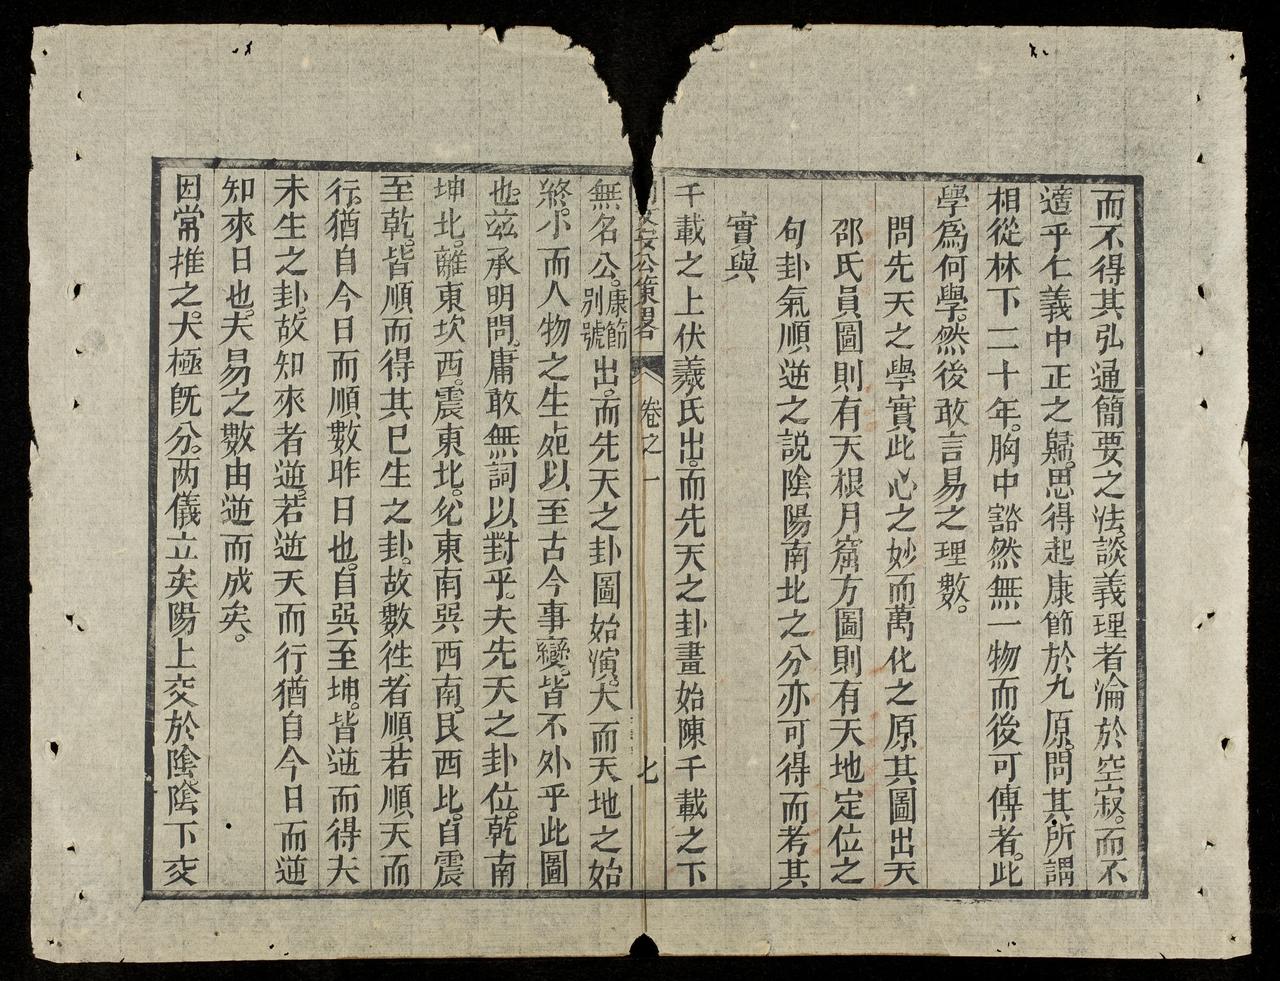 而不得其弘通簡要之法。談義理者淪於空寂。而不
適乎仁義中正之歸。思得起康節於九原。問其所謂
相從林下二十年。胸中豁然無一物而後可傳者。此
學爲何學。然後敢言易之理數。
問先天之學實此心之妙而萬化之原其圖出天
邵氏員圖則有天根月窟方圖則有天地定位之
句卦氣順逆之説陰陽南北之分亦可得而考其
實與
千載之上伏羲氏出。而先天之卦畫始陳千載之下
安公策畧 卷之一 七
無名公。康節别號出。而先天之卦圖始演。大而天地之始
終。小而人物之生死以至古今事變。皆不外乎此圖
也。兹承明問。庸敢無詞以對乎。夫先天之卦位。乾南
坤北。離東坎西。震東北。兊東南巽西南。艮西北。自震
至乾。皆順而得其已生之卦。故數徃者順。若順天而
行。猶自今日而順數昨日也。自巽至坤。皆逆而得夫
未生之卦。故知來者逆。若逆天而行猶自今日而逆
知來日也。夫易之數由逆而成矣。
因常推之。大極旣分。两儀立矣陽上交於陰。陰下交